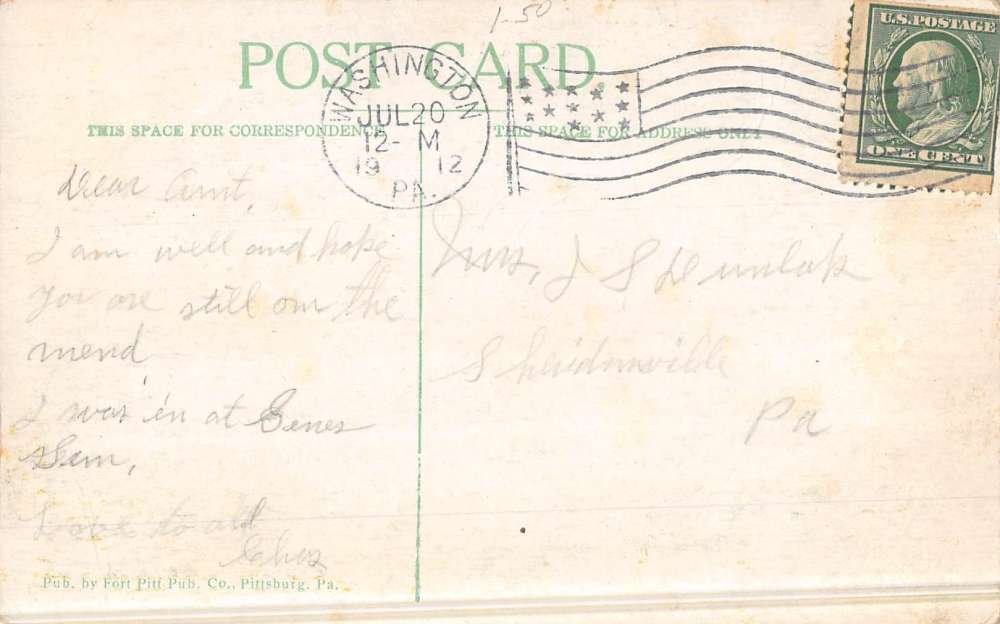 1-50
POST CARD.
U.S. POSTAGE
ONE CENT
WASHINGTON
JUL 20
12- M
19 12
PA.
THIS SPACE FOR CORRESPONDENCE
THIS SPACE FOR ADDRESS ONLY
Dear Aunt,
I am well and hope
you are still on the
mend
I was in at Genes
Sun,
Love to all
Chas
Mrs, J S Dunlap
Sheridanville
Pa
Pub. by Fort Pitt Pub. Co., Pittsburg, Pa.